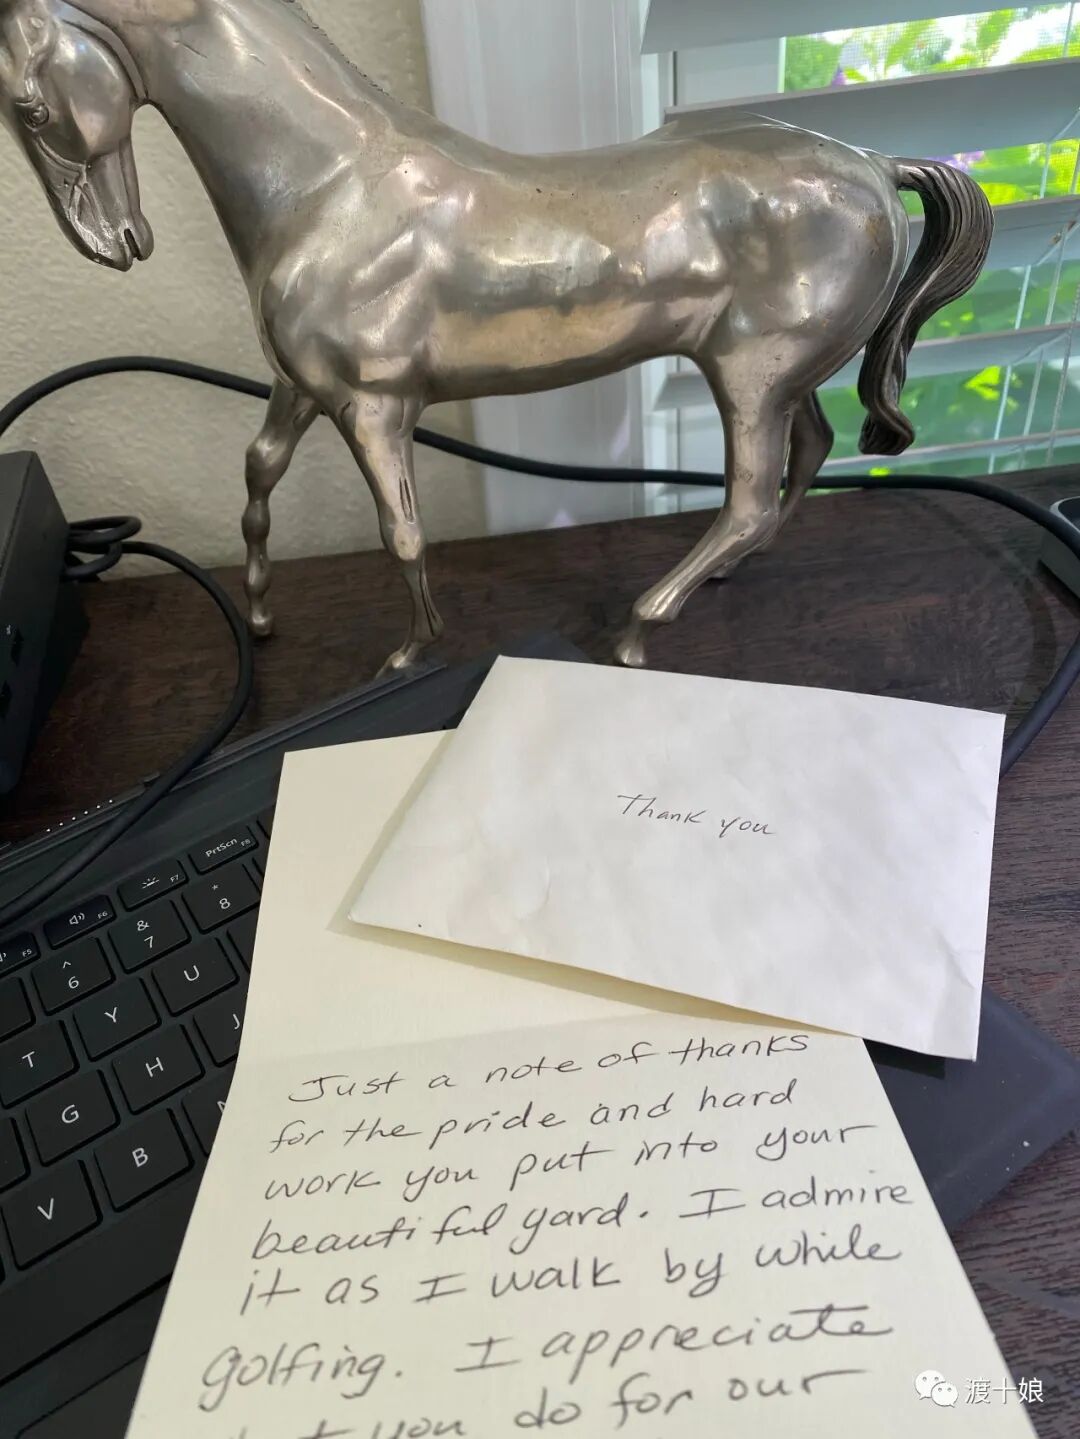 Thank you
Just a note of thanks
for the pride and hard
work you put into your
beautiful yard. I admire
it as I walk by while
golfing. I appreciate
you do for our
PrtScn F8
F7
F6
F5
* 8
& 7
^ 6
U
Y
T
J
H
G
B
V
渡十娘